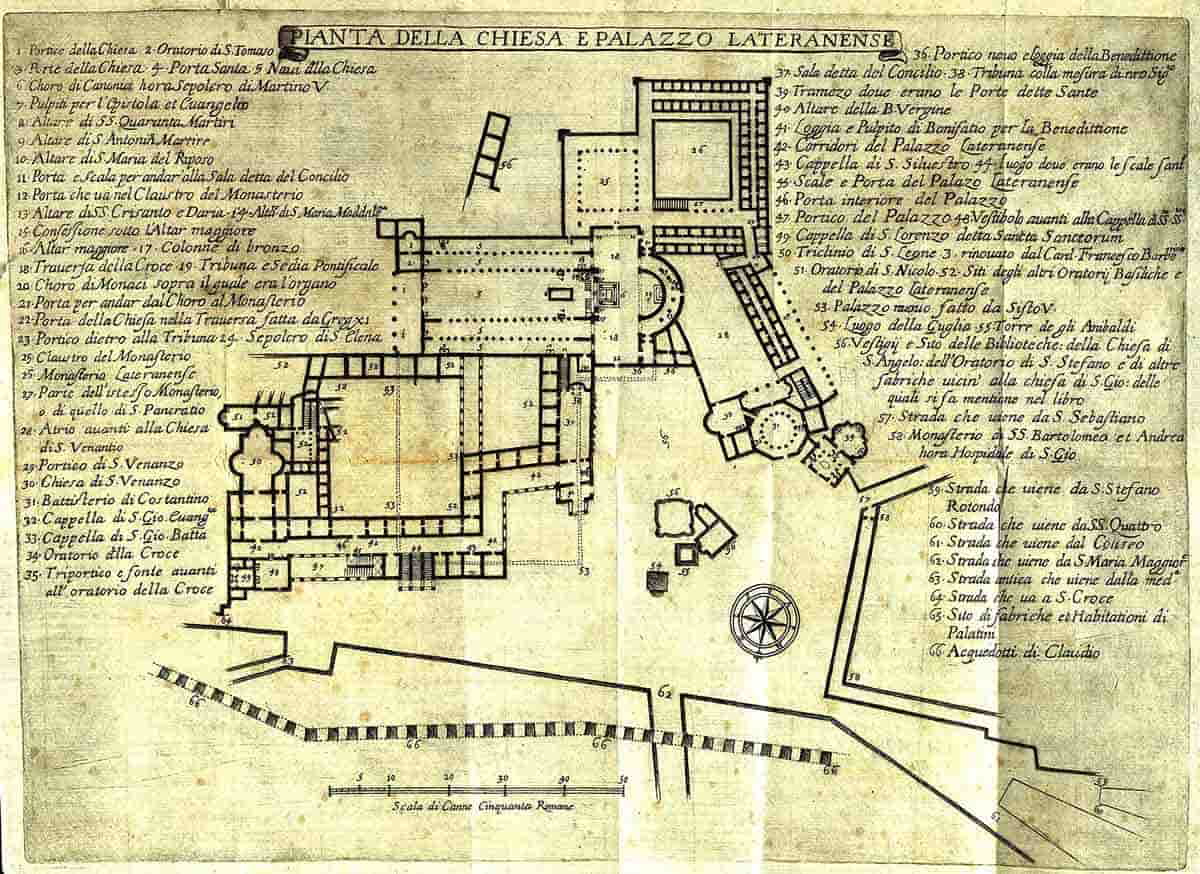 PIANTA DELLA CHIESA E PALAZZO LATERANENSE
1. Portice della Chiesa 2. Oratorio di S. Tomaso
3. Porte della Chiesa 4. Porta Santa 5 Naui della Chiesa
6 Choro di Canonici hora Sepolcro di Martino V
7. Pulpiti per l'Epistola et Euangelio
8. Altare di SS. Quaranta Martiri
9. Altare di S. Antonino Martire
10. Altare di S. Maria del Riposo
11 Porta e Scala per andar alla Sala detta del Concilio
12 Porta che uà nel Claustro del Monasterio
13 Altare di SS. Crisanto e Daria. 14. Altre di S. Maria Maddalna
15. Confessione sotto l'Altar maggiore
16. Altar maggiore. 17. Colonne di bronzo
18. Trauersa della Croce 19. Tribuna e Sedia Pontificale
20. Choro di Monaci sopra il quale era l'organo
21. Porta per andar dal Choro al Monasterio
22. Porta della Chiesa nella Trauersa fatta da Greg XI
23 Portico dietro alla Tribuna 24. Sepolcro di S. Elena
25. Claustro del Monasterio
26. Monasterio Lateranense
27. Parte dell'istesso Monasterio,
o di quello di S. Pancratio
28. Atrio auanti alla Chiesa
di S. Venantio
29. Portico di S. Venanzo
30. Chiesa di S. Venanzo
31. Battisterio di Costantino
32. Cappella di S. Gio. Euangta
33. Cappella di S. Gio. Batta
34. Oratorio della Croce
35. Triportico e fonte auanti
all'oratorio della Croce
36. Portico nouo e loggia della Benedittione
37. Sala detta del Concilio. 38. Tribuna colla mesura di nro Sigre
39 Tramezo doue erano le Porte dette Sante
40 Altare della B. Vergine
41. Loggia e Pulpito di Bonifatio per la Benedittione
42. Corridori del Palazzo Lateranense
43 Cappella di S. Siluestro 44. Luogo doue erano le scale sant
45. Scale e Porta del Palazo Lateranense
46. Porta interiore del Palazzo
47. Portico del Palazzo 48 Vestibolo auanti alla Cappella di SS. SSm
49. Cappella di S. Lorenzo detta Sancta Sanctorum
50 Triclinio di S. Leone 3. rinouato dal Card. Francesco Barbno
51. Oratorio di S. Nicolo. 52. Siti degli altri Oratorij Basiliche e
del Palazzo Lateranense
53. Palazzo nouo fatto da Sisto V
54. Luogo della Guglia 55 Torre de gli Anibaldi
56. Vestigij e Sito delle Biblioteche: della Chiesa di
S. Angelo: dell'Oratorio di S. Stefano e di altre
fabriche uicin' alla chiesa di S. Gio: delle
quali si fa mentione nel libro
57. Strada che uiene da S. Sebastiano
58. Monasterio di SS. Bartolomeo et Andrea
hora Hospidale di S. Gio
59. Strada che uiene da S. Stefano
Rotondo
60. Strada che uiene da SS. Quattro
61. Strada che uiene dal Coliseo
62. Strada che uiene da S. Maria Maggiore
63. Strada antica che uiene dalla meda
64. Strada che ua a S. Croce
65. Sito di fabriche et Habitationi di
Palatini
66 Acquedotti di Claudio
5 10 20 30 40 50
Scala di Canne Cinquanta Romane